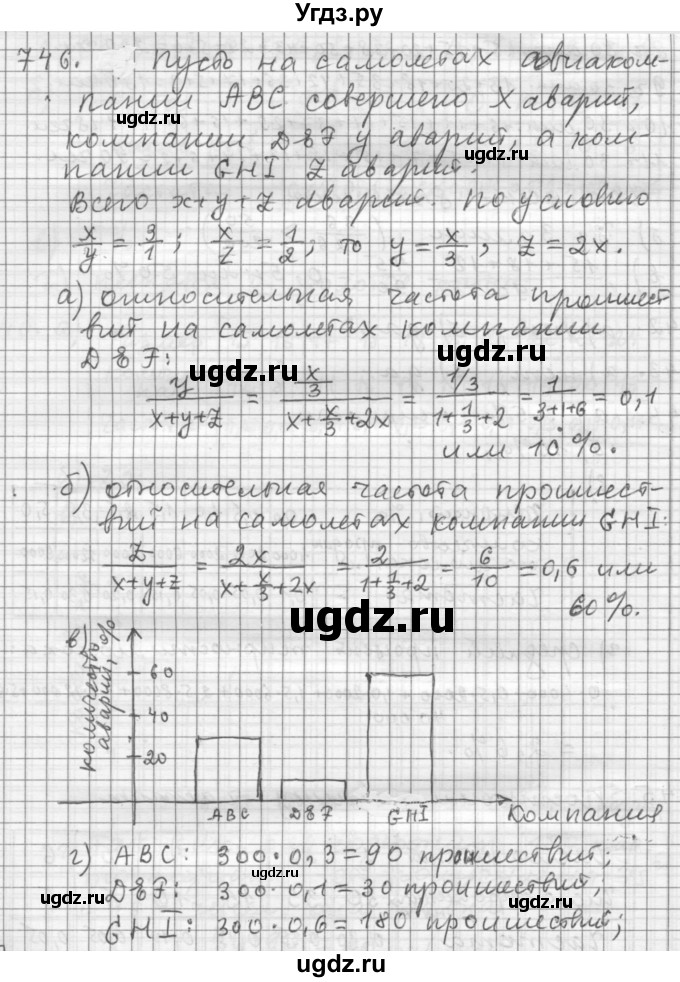 Угдз.ру
746. Пусть на самолетах авиаком-
пании ABC совершено X аварий,
компании DEF y аварий, а ком-
пании GHI Z аварий.
Всего x+y+z аварий. По условию
x/y = 3/1; x/z = 1/2; то y = x/3, z = 2x.
а) относительная частота происшест
вий на самолетах компании
DEF:
y/(x+y+z) = (x/3)/(x+x/3+2x) = (1/3)/(1+1/3+2) = 1/(3+1+6) = 0,1
или 10%.
б) относительная частота происшест-
вий на самолетах компании GHI:
z/(x+y+z) = 2x/(x+x/3+2x) = 2/(1+1/3+2) = 6/10 = 0,6 или
60%.
в)
количество
аварий, %
60
40
20
ABC DEF GHI Компания
г) ABC: 300·0,3=90 проишествий;
DEF: 300·0,1=30 проишествий;
GHI: 300·0,6=180 проишествий;
ugdz.ru
ugdz.ru
ugdz.ru
ugdz.ru
ugdz.ru
ugdz.ru
ugdz.ru
ugdz.ru
ugdz.ru
ugdz.ru
ugdz.ru
ugdz.ru
ugdz.ru